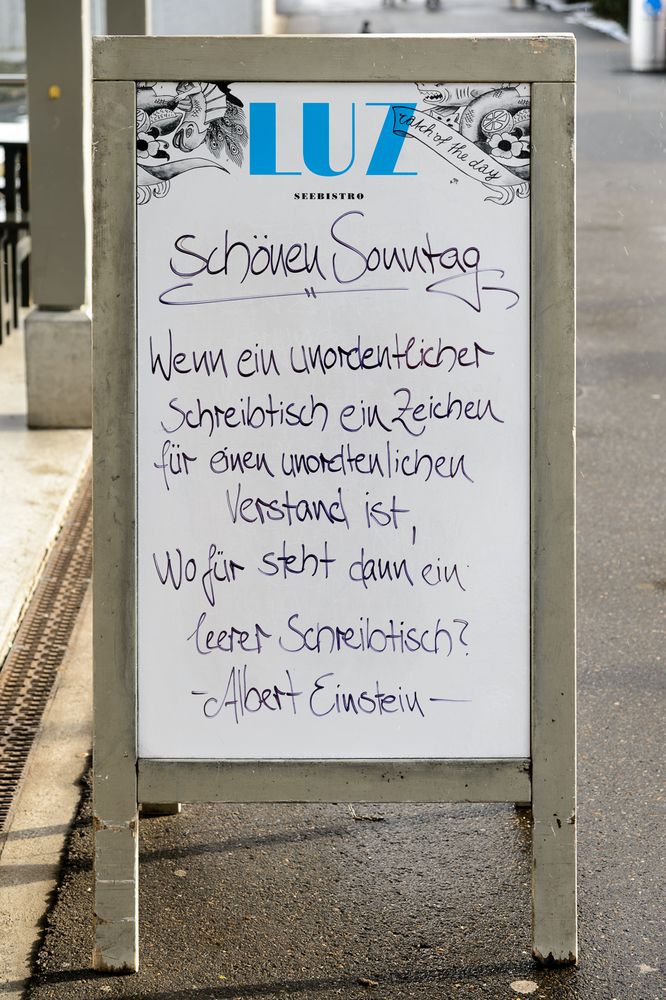 LUZ
catch of the day
SEEBISTRO
Schönen Sonntag
Wenn ein unordentlicher
Schreibtisch ein Zeichen
für einen unordtenlichen
Verstand ist,
Wofür steht dann ein
leerer Schreibtisch?
- Albert Einstein -